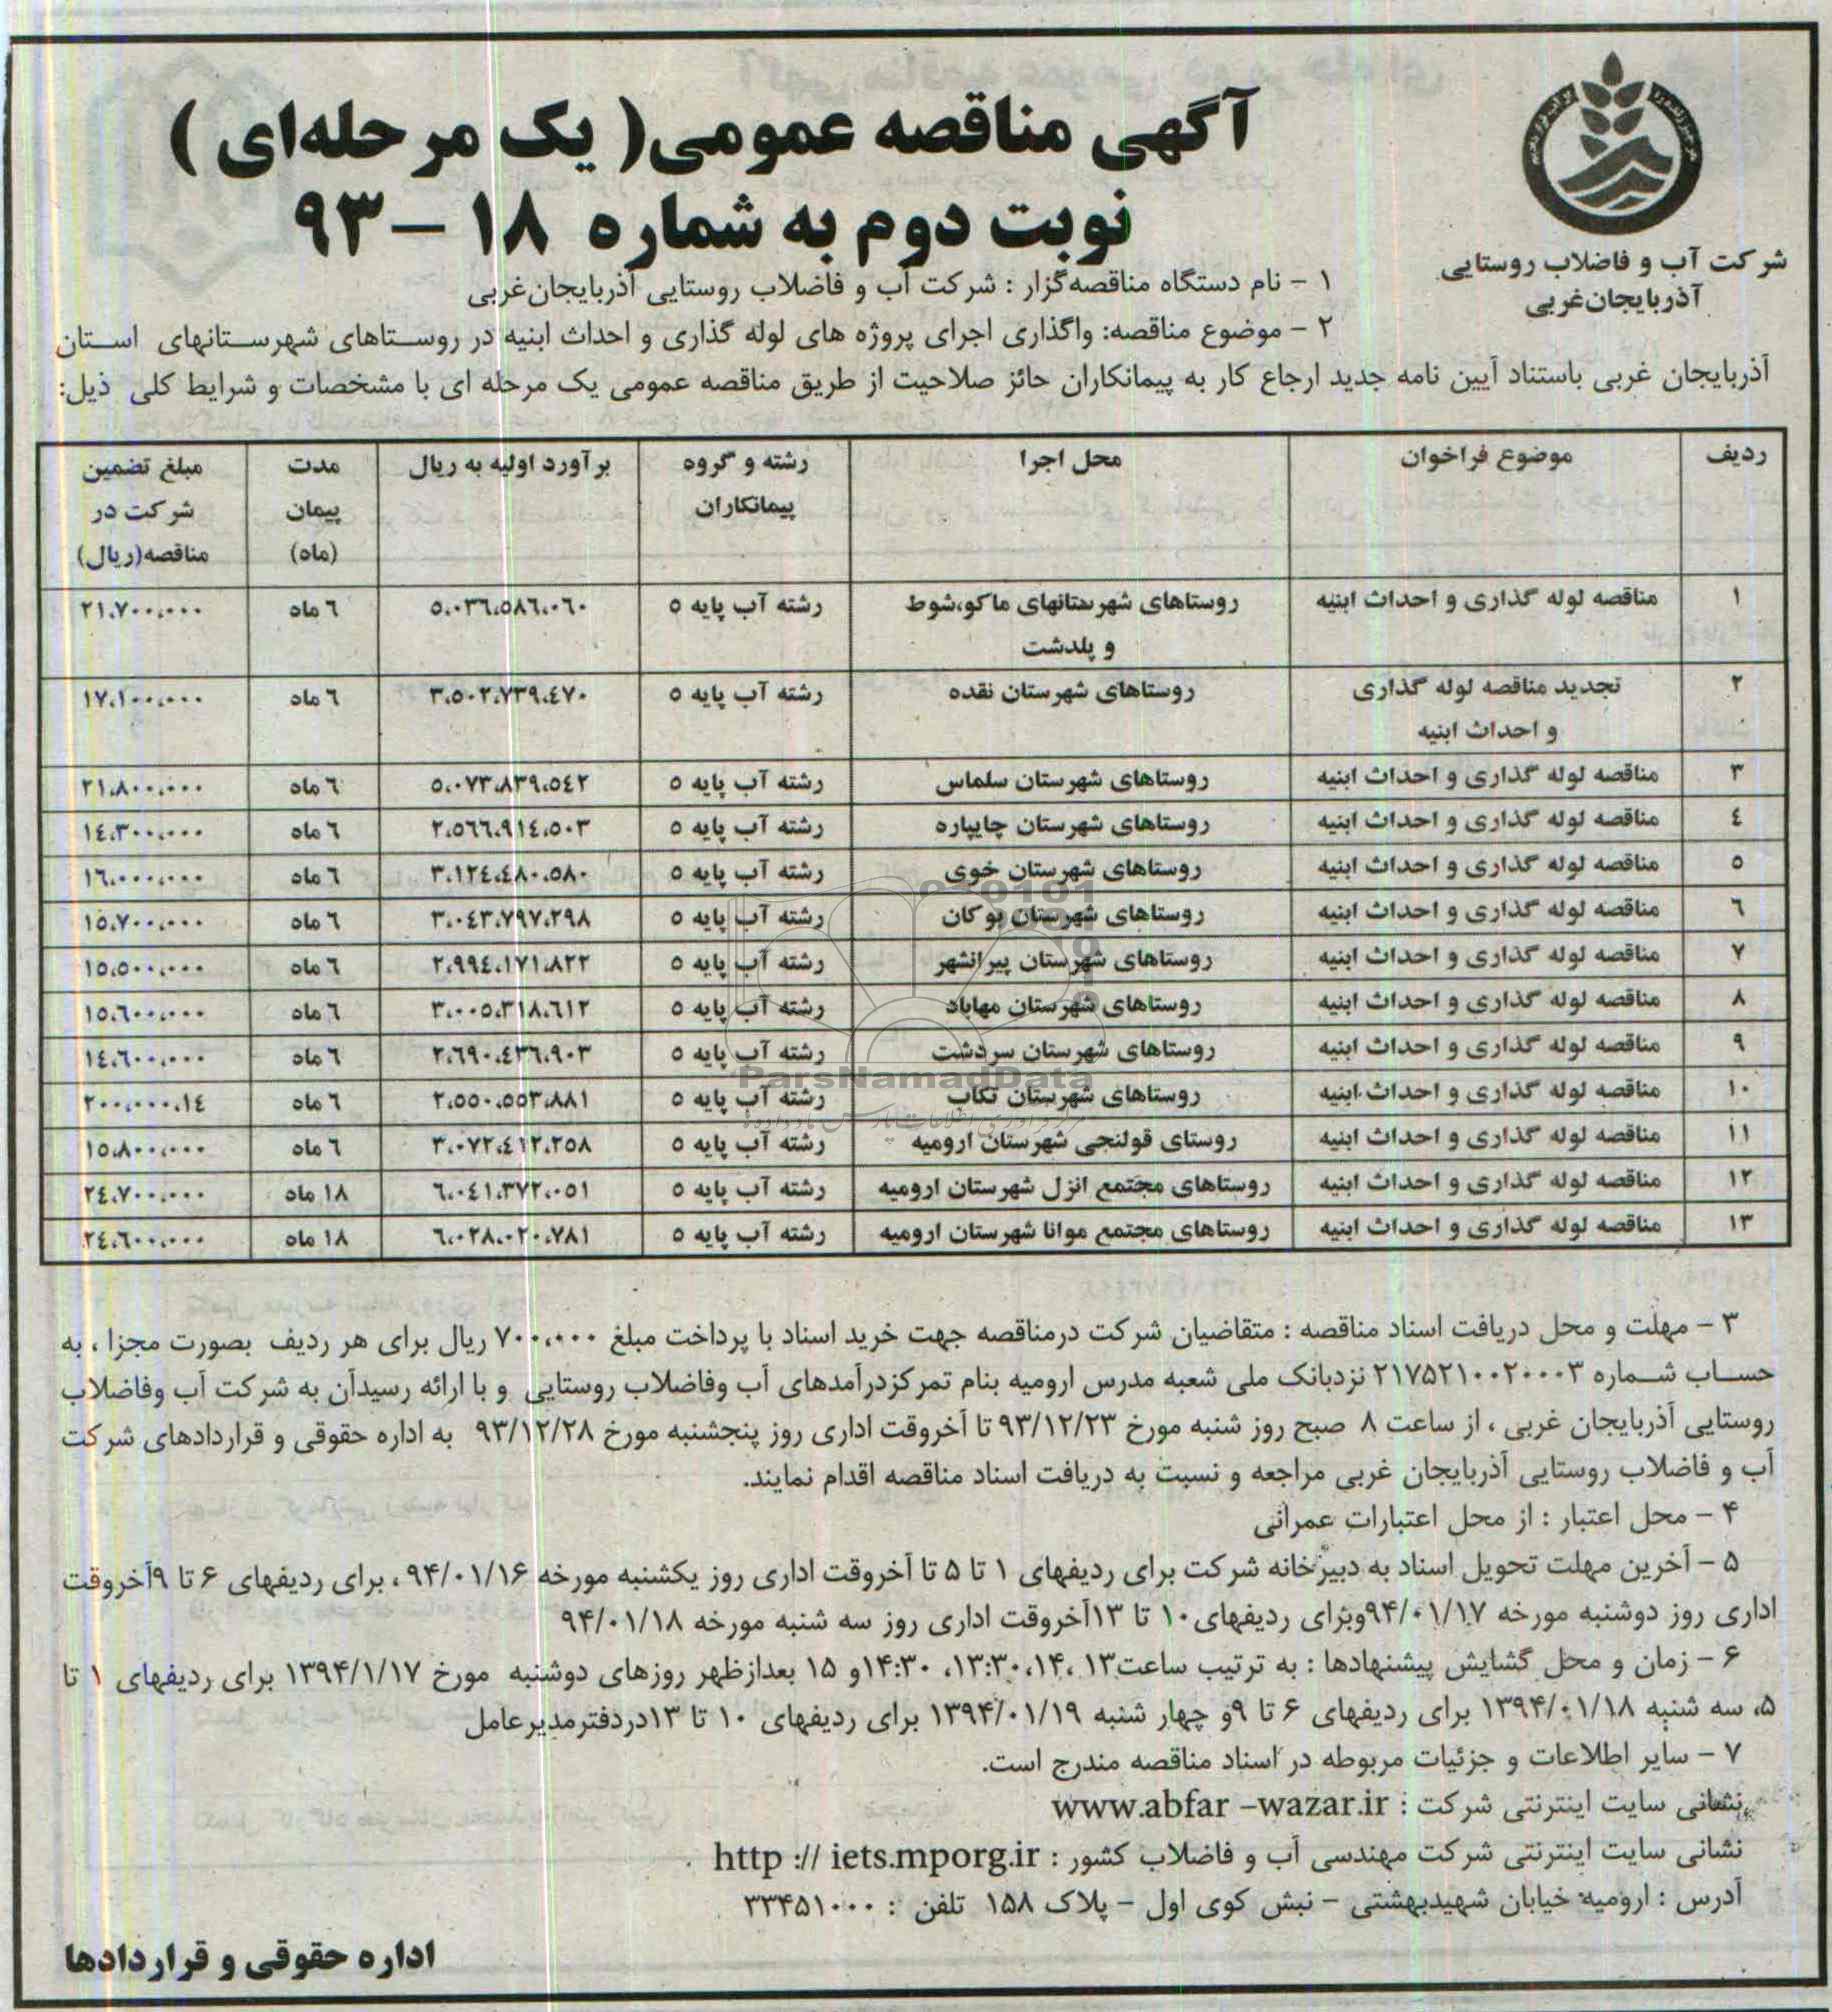 آگهی مناقصه عمومی( یک مرحله‌ای )
نوبت دوم به شماره ۱۸ - ۹۳
شرکت آب و فاضلاب روستایی
آذربایجان‌غربی
۱ - نام دستگاه مناقصه‌گزار : شرکت آب و فاضلاب روستایی آذربایجان‌غربی
۲ - موضوع مناقصه: واگذاری اجرای پروژه های لوله گذاری و احداث ابنیه در روستاهای شهرستانهای استان
آذربایجان غربی باستناد آیین نامه جدید ارجاع کار به پیمانکاران حائز صلاحیت از طریق مناقصه عمومی یک مرحله ای با مشخصات و شرایط کلی ذیل:
ردیف موضوع فراخوان محل اجرا رشته و گروه پیمانکاران برآورد اولیه به ریال مدت پیمان (ماه) مبلغ تضمین شرکت در مناقصه(ریال)
۱ مناقصه لوله گذاری و احداث ابنیه روستاهای شهرستانهای ماکو،شوط و پلدشت رشته آب پایه ۵ ۵،۰۳۶،۵۸۶،۰۶۰ ۶ ماه ۲۱،۷۰۰،۰۰۰
۲ تجدید مناقصه لوله گذاری و احداث ابنیه روستاهای شهرستان نقده رشته آب پایه ۵ ۳،۵۰۲،۷۳۹،۴۷۰ ۶ ماه ۱۷،۱۰۰،۰۰۰
۳ مناقصه لوله گذاری و احداث ابنیه روستاهای شهرستان سلماس رشته آب پایه ۵ ۵،۰۷۳،۸۳۹،۵۴۲ ۶ ماه ۲۱،۸۰۰،۰۰۰
۴ مناقصه لوله گذاری و احداث ابنیه روستاهای شهرستان چایپاره رشته آب پایه ۵ ۲،۵۶۶،۹۱۴،۵۰۳ ۶ ماه ۱۴،۳۰۰،۰۰۰
۵ مناقصه لوله گذاری و احداث ابنیه روستاهای شهرستان خوی رشته آب پایه ۵ ۳،۱۲۴،۴۸۰،۵۸۰ ۶ ماه ۱۶،۰۰۰،۰۰۰
۶ مناقصه لوله گذاری و احداث ابنیه روستاهای شهرستان بوکان رشته آب پایه ۵ ۳،۰۴۳،۷۹۷،۲۹۸ ۶ ماه ۱۵،۷۰۰،۰۰۰
۷ مناقصه لوله گذاری و احداث ابنیه روستاهای شهرستان پیرانشهر رشته آب پایه ۵ ۲،۹۹۴،۱۷۱،۸۲۲ ۶ ماه ۱۵،۵۰۰،۰۰۰
۸ مناقصه لوله گذاری و احداث ابنیه روستاهای شهرستان مهاباد رشته آب پایه ۵ ۳،۰۰۵،۳۱۸،۶۱۲ ۶ ماه ۱۵،۶۰۰،۰۰۰
۹ مناقصه لوله گذاری و احداث ابنیه روستاهای شهرستان سردشت رشته آب پایه ۵ ۲،۶۹۰،۴۳۶،۹۰۳ ۶ ماه ۱۴،۶۰۰،۰۰۰
۱۰ مناقصه لوله گذاری و احداث ابنیه روستاهای شهرستان تکاب رشته آب پایه ۵ ۲،۵۵۰،۵۵۳،۸۸۱ ۶ ماه ۲۰۰،۰۰۰،۱۴
۱۱ مناقصه لوله گذاری و احداث ابنیه روستای قولنجی شهرستان ارومیه رشته آب پایه ۵ ۳،۰۷۲،۴۱۲،۲۵۸ ۶ ماه ۱۵،۸۰۰،۰۰۰
۱۲ مناقصه لوله گذاری و احداث ابنیه روستاهای مجتمع انزل شهرستان ارومیه رشته آب پایه ۵ ۶،۰۴۱،۳۷۲،۰۵۱ ۱۸ ماه ۲۴،۷۰۰،۰۰۰
۱۳ مناقصه لوله گذاری و احداث ابنیه روستاهای مجتمع موانا شهرستان ارومیه رشته آب پایه ۵ ۶،۰۲۸،۰۲۰،۷۸۱ ۱۸ ماه ۲۴،۶۰۰،۰۰۰
ParsNamadData
۳ - مهلت و محل دریافت اسناد مناقصه : متقاضیان شرکت درمناقصه جهت خرید اسناد با پرداخت مبلغ ۷۰۰،۰۰۰ ریال برای هر ردیف بصورت مجزا ، به
حساب شماره ۲۱۷۵۲۱۰۰۲۰۰۰۳ نزدبانک ملی شعبه مدرس ارومیه بنام تمرکزدرآمدهای آب وفاضلاب روستایی و با ارائه رسیدآن به شرکت آب وفاضلاب
روستایی آذربایجان غربی ، از ساعت ۸ صبح روز شنبه مورخ ۹۳/۱۲/۲۳ تا آخروقت اداری روز پنجشنبه مورخ ۹۳/۱۲/۲۸ به اداره حقوقی و قراردادهای شرکت
آب و فاضلاب روستایی آذربایجان غربی مراجعه و نسبت به دریافت اسناد مناقصه اقدام نمایند.
۴ - محل اعتبار : از محل اعتبارات عمرانی
۵ - آخرین مهلت تحویل اسناد به دبیرخانه شرکت برای ردیفهای ۱ تا ۵ تا آخروقت اداری روز یکشنبه مورخه ۹۴/۰۱/۱۶ ، برای ردیفهای ۶ تا ۹آخروقت
اداری روز دوشنبه مورخه ۹۴/۰۱/۱۷وبرای ردیفهای۱۰ تا ۱۳آخروقت اداری روز سه شنبه مورخه ۹۴/۰۱/۱۸
۶ - زمان و محل گشایش پیشنهادها : به ترتیب ساعت۱۳ ،۱۳:۳۰،۱۴، ۱۴:۳۰و ۱۵ بعدازظهر روزهای دوشنبه مورخ ۱۳۹۴/۱/۱۷ برای ردیفهای ۱ تا
۵، سه شنبه ۱۳۹۴/۰۱/۱۸ برای ردیفهای ۶ تا ۹و چهار شنبه ۱۳۹۴/۰۱/۱۹ برای ردیفهای ۱۰ تا ۱۳دردفترمدیرعامل
۷ - سایر اطلاعات و جزئیات مربوطه در اسناد مناقصه مندرج است.
نشانی سایت اینترنتی شرکت : www.abfar -wazar.ir
نشانی سایت اینترنتی شرکت مهندسی آب و فاضلاب کشور : http :// iets.mporg.ir
آدرس : ارومیه خیابان شهیدبهشتی - نبش کوی اول - پلاک ۱۵۸ تلفن : ۳۳۴۵۱۰۰۰
اداره حقوقی و قراردادها